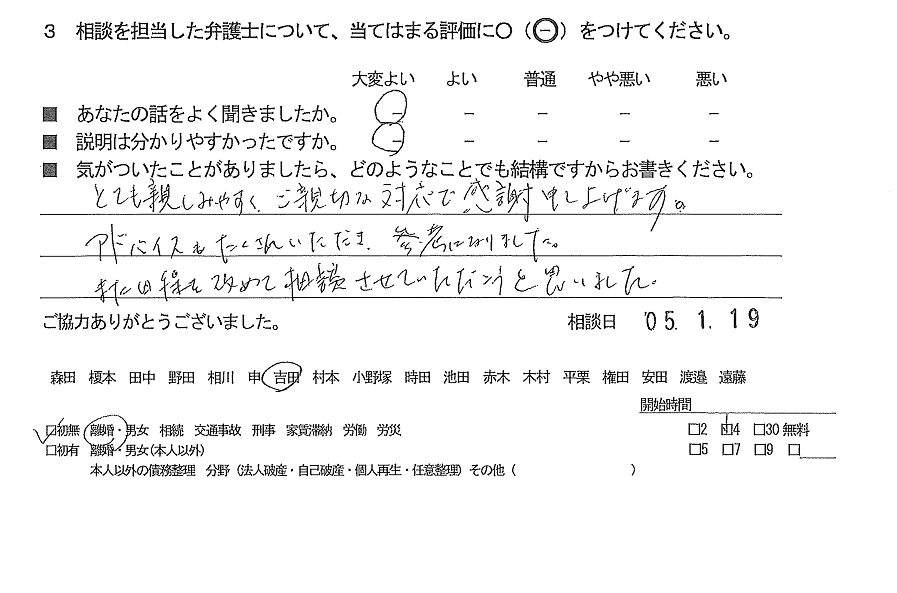 3 相談を担当した弁護士について、当てはまる評価に○（㊀）をつけてください。
大変よい よい 普通 やや悪い 悪い
■ あなたの話をよく聞きましたか。 － － － － －
■ 説明は分かりやすかったですか。 － － － － －
■ 気がついたことがありましたら、どのようなことでも結構ですからお書きください。
とても親しみやすく、ご親切な対応で感謝申し上げます。
アドバイスもたくさんいただき、参考になりました。
また日程を改めて相談させていただこうと思いました。
ご協力ありがとうございました。 相談日 '05. 1. 19
森田 榎本 田中 野田 相川 申 吉田 村本 小野塚 時田 池田 赤木 木村 平栗 権田 安田 渡邉 遠藤
開始時間
□初無 離婚・男女 相続 交通事故 刑事 家賃滞納 労働 労災 □2 □4 □30無料
□初有 離婚・男女(本人以外) □5 □7 □9 □
本人以外の債務整理 分野（法人破産・自己破産・個人再生・任意整理）その他（ ）